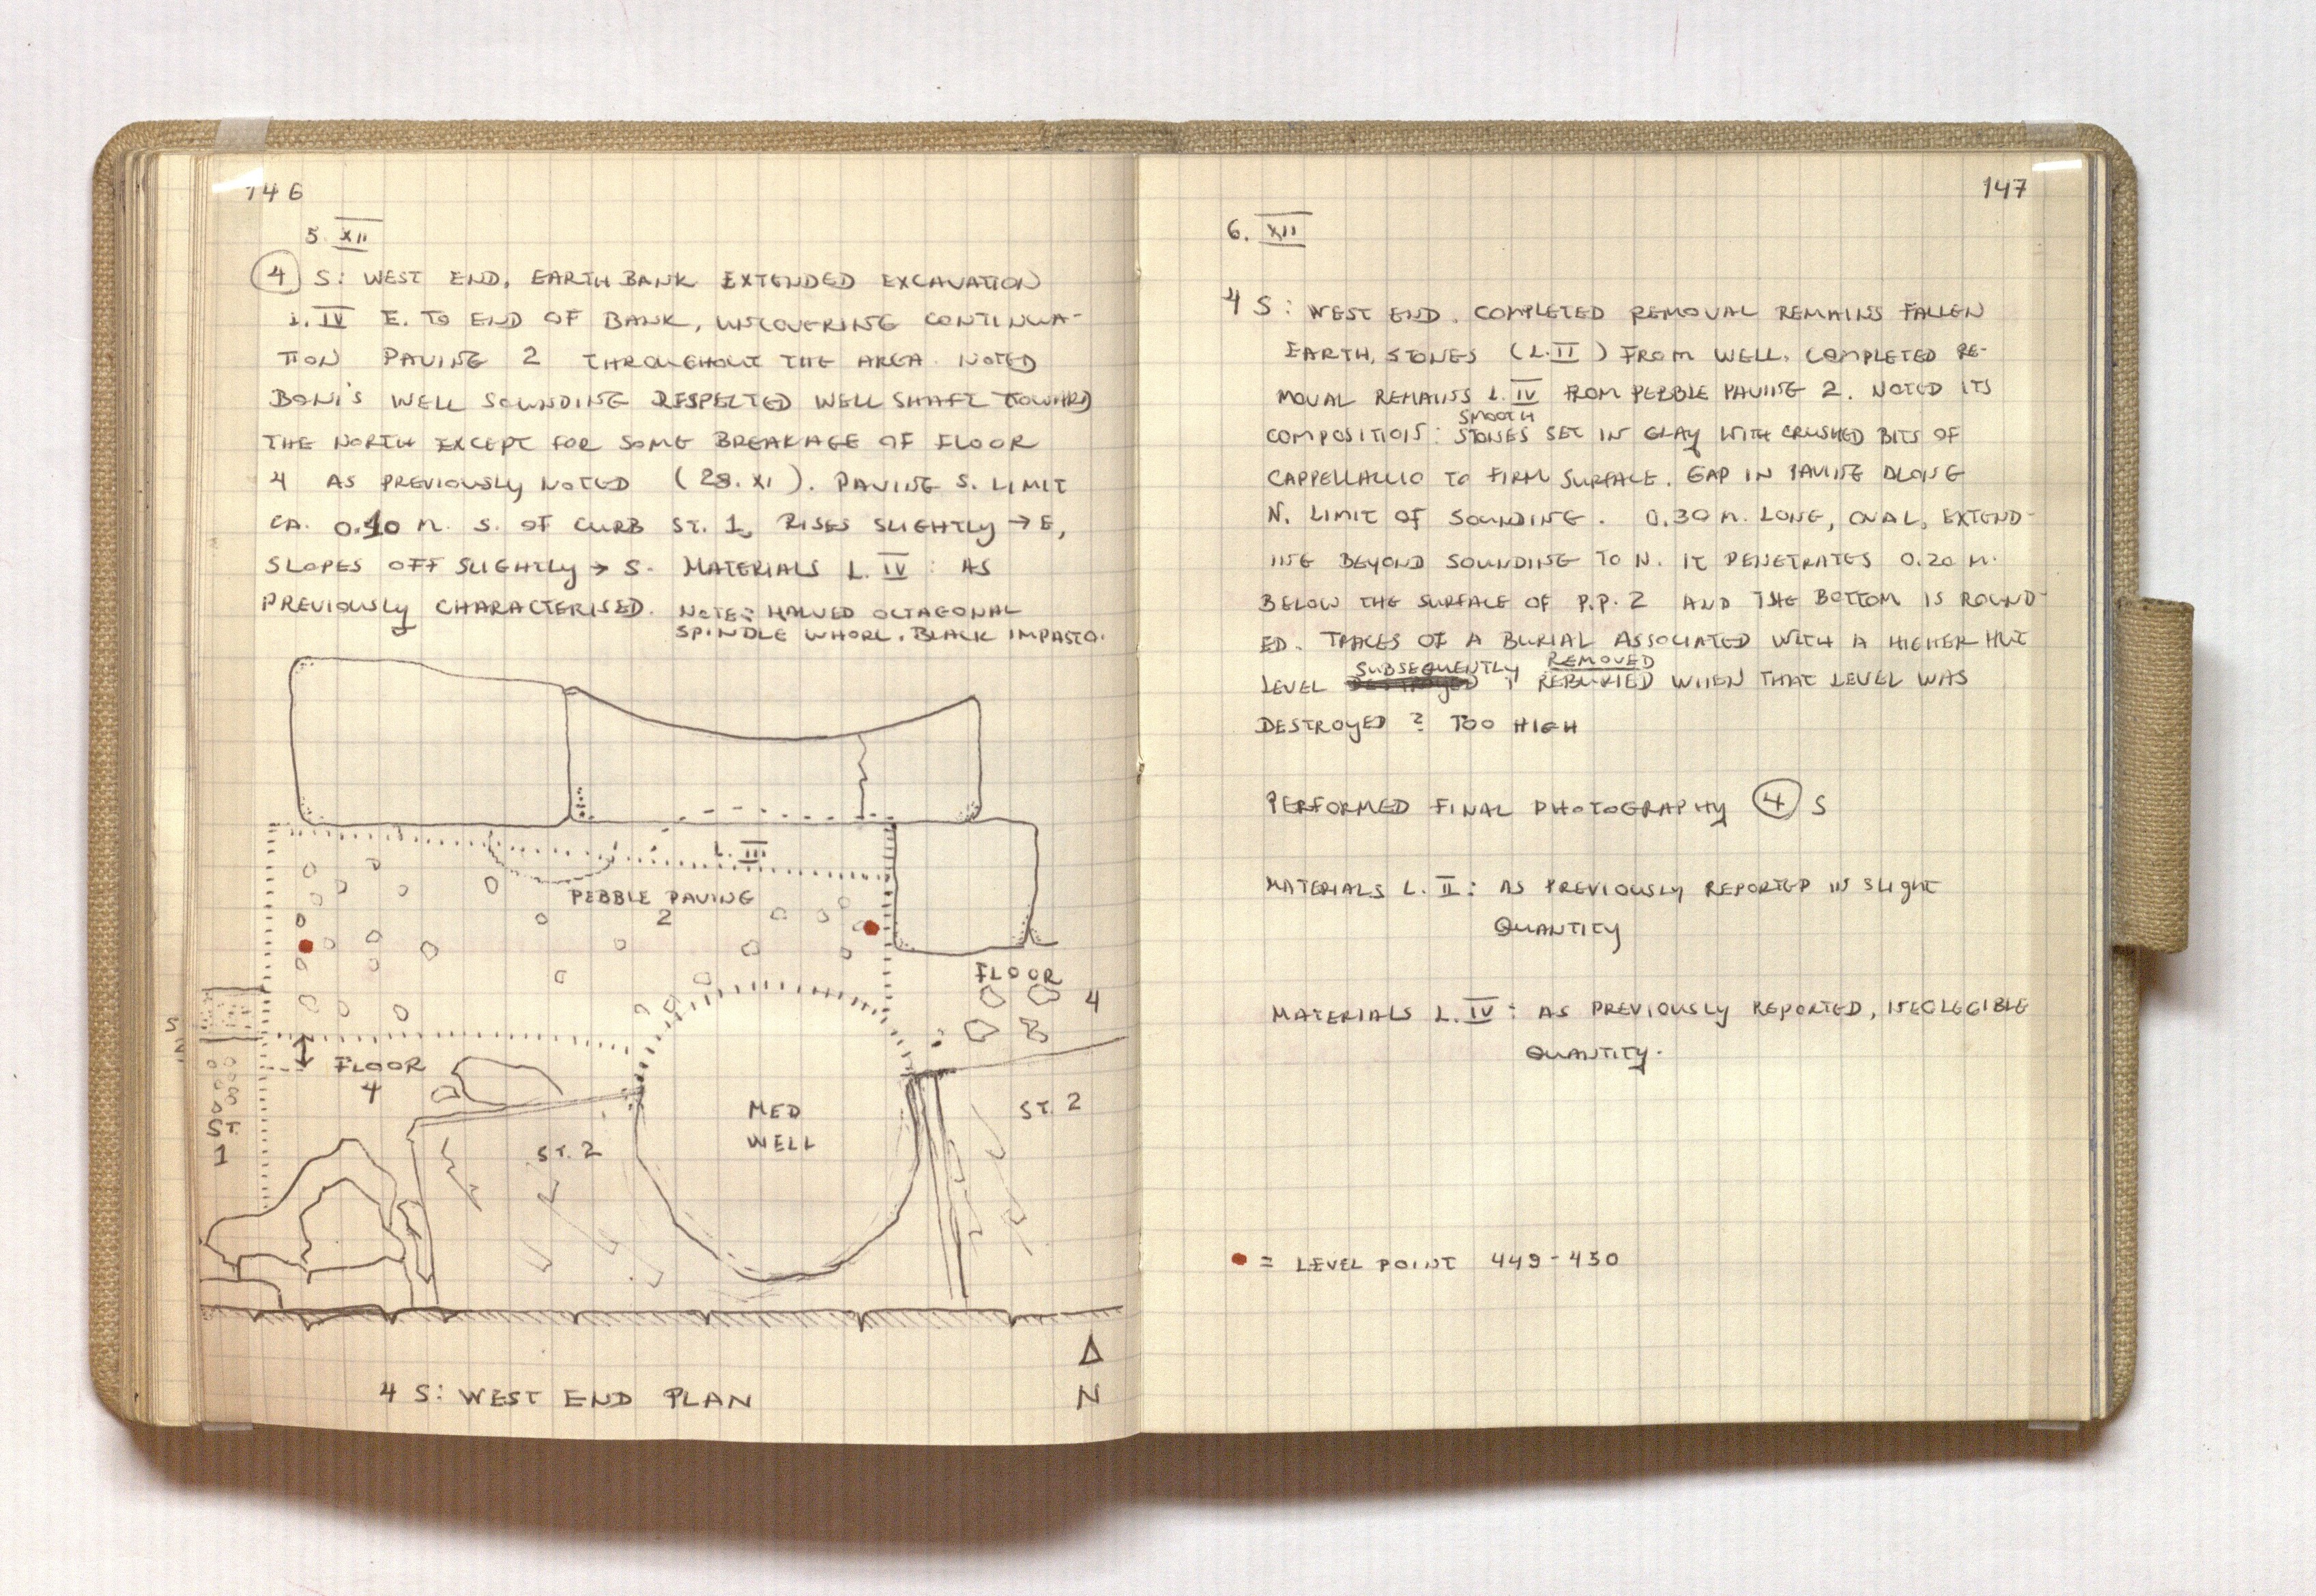 146
5. XII
4 S: WEST END, EARTH BANK EXTENDED EXCAVATION
L. IV E. TO END OF BANK, UNCOVERING CONTINUA-
TION PAVING 2 THROUGHOUT THE AREA. NOTED
BONI'S WELL SOUNDING RESPECTED WELL SHAFT TOWARD
THE NORTH EXCEPT FOR SOME BREAKAGE OF FLOOR
4 AS PREVIOUSLY NOTED (28. XI). PAVING S. LIMIT
CA. 0.10 M. S. OF CURB ST. 1, RISES SLIGHTLY → E,
SLOPES OFF SLIGHTLY → S. MATERIALS L. IV: AS
PREVIOUSLY CHARACTERISED. NOTE: HALVED OCTAGONAL
SPINDLE WHORL. BLACK IMPASTO.
L. III
PEBBLE PAVING
2
FLOOR
4
FLOOR
4
ST.
1
ST. 2
MED
WELL
ST. 2
4 S: WEST END PLAN
N
147
6. XII
4 S: WEST END. COMPLETED REMOVAL REMAINS FALLEN
EARTH, STONES (L. II) FROM WELL. COMPLETED RE-
MOVAL REMAINS L. IV FROM PEBBLE PAVING 2. NOTED ITS
SMOOTH
COMPOSITION: STONES SET IN CLAY WITH CRUSHED BITS OF
CAPPELLACCIO TO FIRM SURFACE. GAP IN PAVING ALONG
N. LIMIT OF SOUNDING. 0.30 M. LONG, OVAL, EXTEND-
ING BEYOND SOUNDING TO N. IT PENETRATES 0.20 M.
BELOW THE SURFACE OF P.P. 2 AND THE BOTTOM IS ROUND-
ED. TRACES OF A BURIAL ASSOCIATED WITH A HIGHER HUT
SUBSEQUENTLY REMOVED
LEVEL & REBURIED WHEN THAT LEVEL WAS
DESTROYED? TOO HIGH
PERFORMED FINAL PHOTOGRAPHY 4 S
MATERIALS L. II: AS PREVIOUSLY REPORTED IN SLIGHT
QUANTITY
MATERIALS L. IV: AS PREVIOUSLY REPORTED, NEGLEGIBLE
QUANTITY.
= LEVEL POINT 449-450